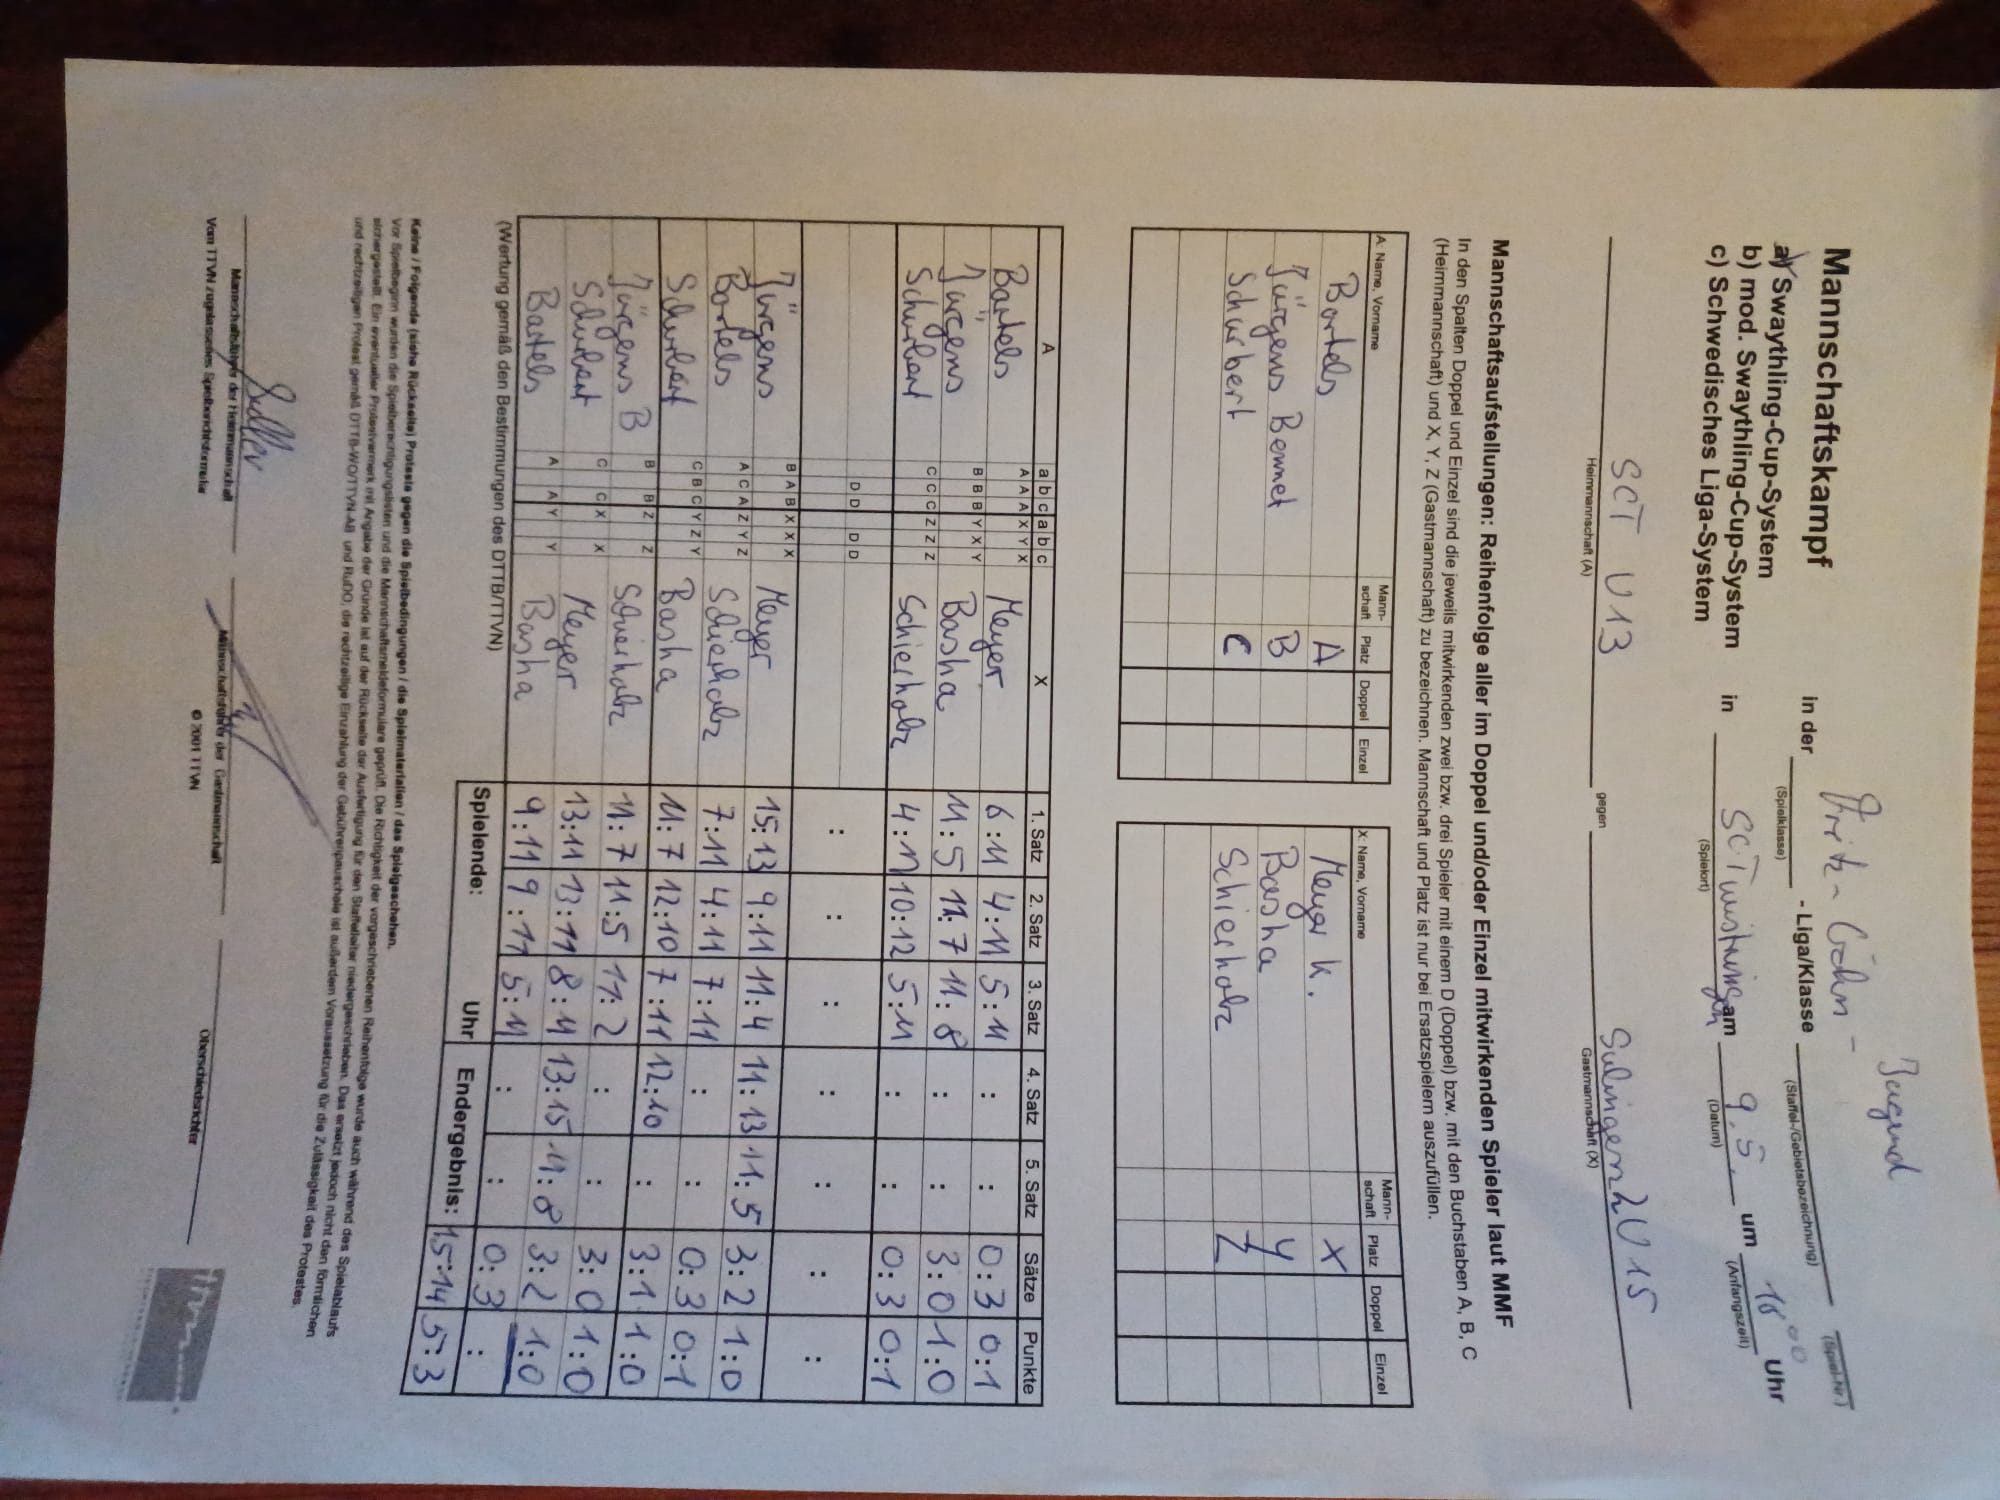 Jugend
Mannschaftskampf in der Fritz-Göhn-
(Spielklasse) - Liga/Klasse (Staffel-/Gebietsbezeichnung) (Spiel-Nr.)
a) Swaythling-Cup-System
b) mod. Swaythling-Cup-System in SC Twistringen am 9.5. um 18 00 Uhr
c) Schwedisches Liga-System (Spielort) (Datum) (Anfangszeit)
SCT U13 gegen Sulingen 2 U15
Heimmannschaft (A) Gastmannschaft (X)
Mannschaftsaufstellungen: Reihenfolge aller im Doppel und/oder Einzel mitwirkenden Spieler laut MMF
In den Spalten Doppel und Einzel sind die jeweils mitwirkenden zwei bzw. drei Spieler mit einem D (Doppel) bzw. mit den Buchstaben A, B, C
(Heimmannschaft) und X, Y, Z (Gastmannschaft) zu bezeichnen. Mannschaft und Platz ist nur bei Ersatzspielern auszufüllen.
A: Name, Vorname Mann-schaft Platz Doppel Einzel X: Name, Vorname Mann-schaft Platz Doppel Einzel
Bartels A Meyer K. X
Jürgens Bennet B Basha Y
Schubert C Schierholz Z
A a b c a b c X 1. Satz 2. Satz 3. Satz 4. Satz 5. Satz Sätze Punkte
Bartels A A A X Y X Meyer 6:11 4:11 5:11 : : 0:3 0:1
Jürgens B B B Y X Y Basha 11:5 11:7 11:8 : : 3:0 1:0
Schubert C C C Z Z Z Schierholz 4:11 10:12 5:11 : : 0:3 0:1
D D D D : : : : : : :
Jürgens B A B X X X Meyer 15:13 9:11 11:4 11:13 11:5 3:2 1:0
Bartels A C A Z Y Z Schierholz 7:11 4:11 7:11 : : 0:3 0:1
Schubert C B C Y Z Y Basha 11:7 12:10 7:11 12:10 : 3:1 1:0
Jürgens B B B Z Z Schierholz 11:7 11:5 11:2 : : 3:0 1:0
Schubert C C X X Meyer 13:11 13:11 8:11 13:15 11:8 3:2 1:0
Bartels A A Y Y Basha 9:11 9:11 5:11 : : 0:3 :
(Wertung gemäß den Bestimmungen des DTTB/TTVN) Spielende: Uhr Endergebnis: 15:14 5:3
Keine / Folgende (siehe Rückseite) Proteste gegen die Spielbedingungen / die Spielmaterialien / das Spielgeschehen.
Vor Spielbeginn wurden die Spielberechtigungslisten und die Mannschaftsmeldeformulare geprüft. Die Richtigkeit der vorgeschriebenen Reihenfolge wurde auch während des Spielablaufs
sichergestellt. Ein eventueller Protestvermerk mit Angabe der Gründe ist auf der Rückseite der Ausfertigung für den Staffelleiter niedergeschrieben. Das ersetzt jedoch nicht den förmlichen
und rechtzeitigen Protest gemäß DTTB-WO/TTVN-AB und RuDO; die rechtzeitige Einzahlung der Gebührenpauschale ist außerdem Voraussetzung für die Zulässigkeit des Protestes.
Mannschaftsführer der Heimmannschaft Mannschaftsführer der Gastmannschaft Oberschiedsrichter
Vom TTVN zugelassenes Spielberichtsformular © 2001 TTVN